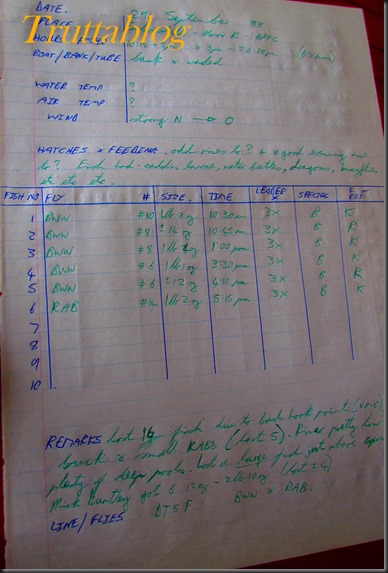 Truttablog
DATE. 2 September 88
PLACE
HOURS
BOAT/BANK/TUBE bank & waded
WATER TEMP ?
AIR TEMP ?
WIND strong N → O
HATCHES & FEEDING. odd rises to ? & good evening rise
to ? Fish had caddis larvae, water beetles, dragons, mayflies
etc etc etc.
FISH NO FLY # SIZE. TIME LEADER X SPECIES K or RET
1 BWN #10 1lb 2oz 10:30am 3X B K
2 BWN #8 ± 14 oz 10:45am 3X B R
3 BWN #8 1lb 4oz 1:00 pm 3X B K
4 BWN #6 1lb 1oz 3:30 pm 3X B K
5 BWN #6 ±12 oz 4:10 pm 3X B R
6 RAB #14 1lb 2oz 5:15 pm 3X B K
7
8
9
10.
REMARKS Lost 16 fish due to bad hook point (vmc)
& small RABs (lost 5). River pretty low
plenty of deep pools. Lost a large fish just above
Mick Huntley got 6 12oz - 2lb 10oz (lost ± 4)
LINE/FLIES DT5F BWN & RAB.